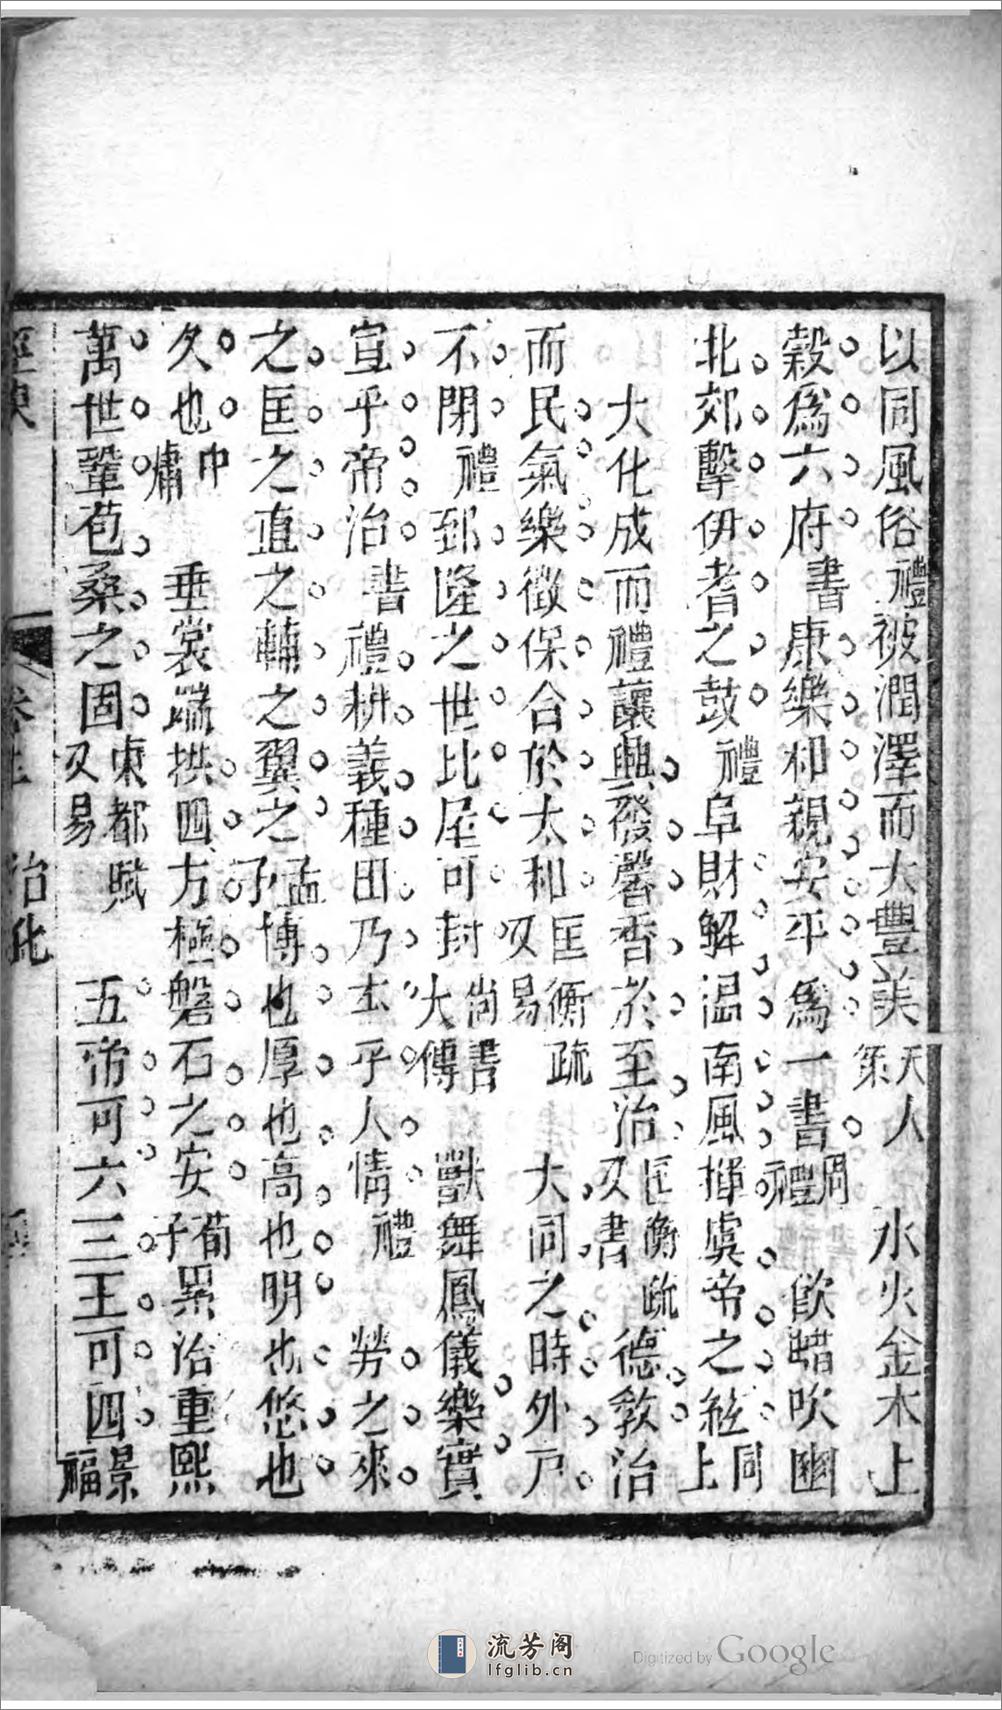 以同風俗禮被潤澤而大豐美天人策 水火金木土
穀爲六府書康樂和親安平爲一書周禮 飲蜡吹豳
北郊擊伊耆之鼓禮阜財解溫南風揮虞帝之絃同上
大化成而禮讓興發馨香於至治匡衡疏又書 德敎洽
而民氣樂徵保合於太和匡衡疏又易 大同之時外戸
不閉禮郅隆之世比屋可封尚書大傳 獸舞鳳儀樂實
宣乎帝治書禮耕義種田乃在乎人情禮 勞之來
之匡之直之輔之翼之孟子博也厚也高也明也悠也
久也中庸 垂裳端拱四方極磐石之安荀子累治重熙
萬世鞏苞桑之固東都賦又易 五帝可六三王可四景福
治化
流芳阁
lfglib.cn
Digitized by Google